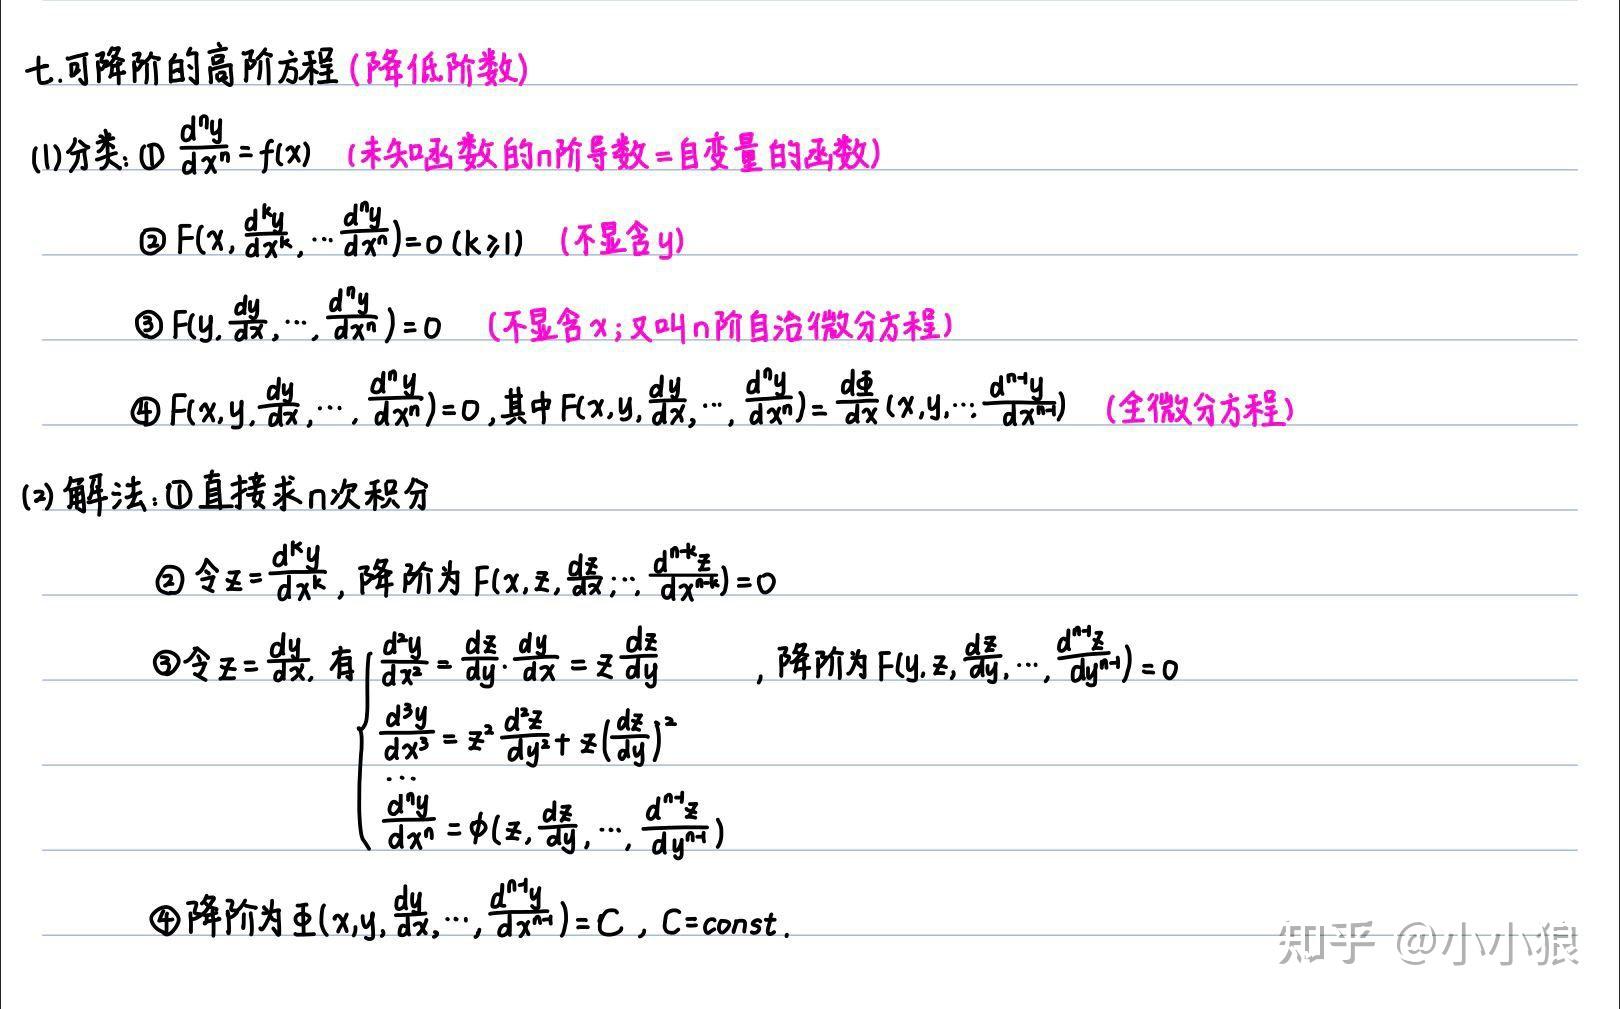 七.可降阶的高阶方程(降低阶数)
(1)分类:① dⁿy/dxⁿ=f(x) (未知函数的n阶导数=自变量的函数)
② F(x, dᵏy/dxᵏ, … dⁿy/dxⁿ)=0 (k≥1) (不显含y)
③ F(y, dy/dx, …, dⁿy/dxⁿ)=0 (不显含x;又叫n阶自治微分方程)
④ F(x,y,dy/dx,…, dⁿy/dxⁿ)=0,其中F(x,y,dy/dx,…, dⁿy/dxⁿ)=dΦ/dx(x,y,…, dⁿ⁻¹y/dxⁿ⁻¹) (全微分方程)
(2)解法:①直接求n次积分
② 令z=dᵏy/dxᵏ, 降阶为F(x,z,dz/dx,…, dⁿ⁻ᵏz/dxⁿ⁻ᵏ)=0
③令z=dy/dx, 有{ d²y/dx²=dz/dy·dy/dx=z dz/dy ,降阶为F(y,z,dz/dy,…, dⁿ⁻¹z/dyⁿ⁻¹)=0
d³y/dx³=z² d²z/dy²+z(dz/dy)²
…
dⁿy/dxⁿ=φ(z,dz/dy,…, dⁿ⁻¹z/dyⁿ⁻¹)
④降阶为Φ(x,y,dy/dx,…, dⁿ⁻¹y/dxⁿ⁻¹)=C , C=const.
知乎 @小小狼